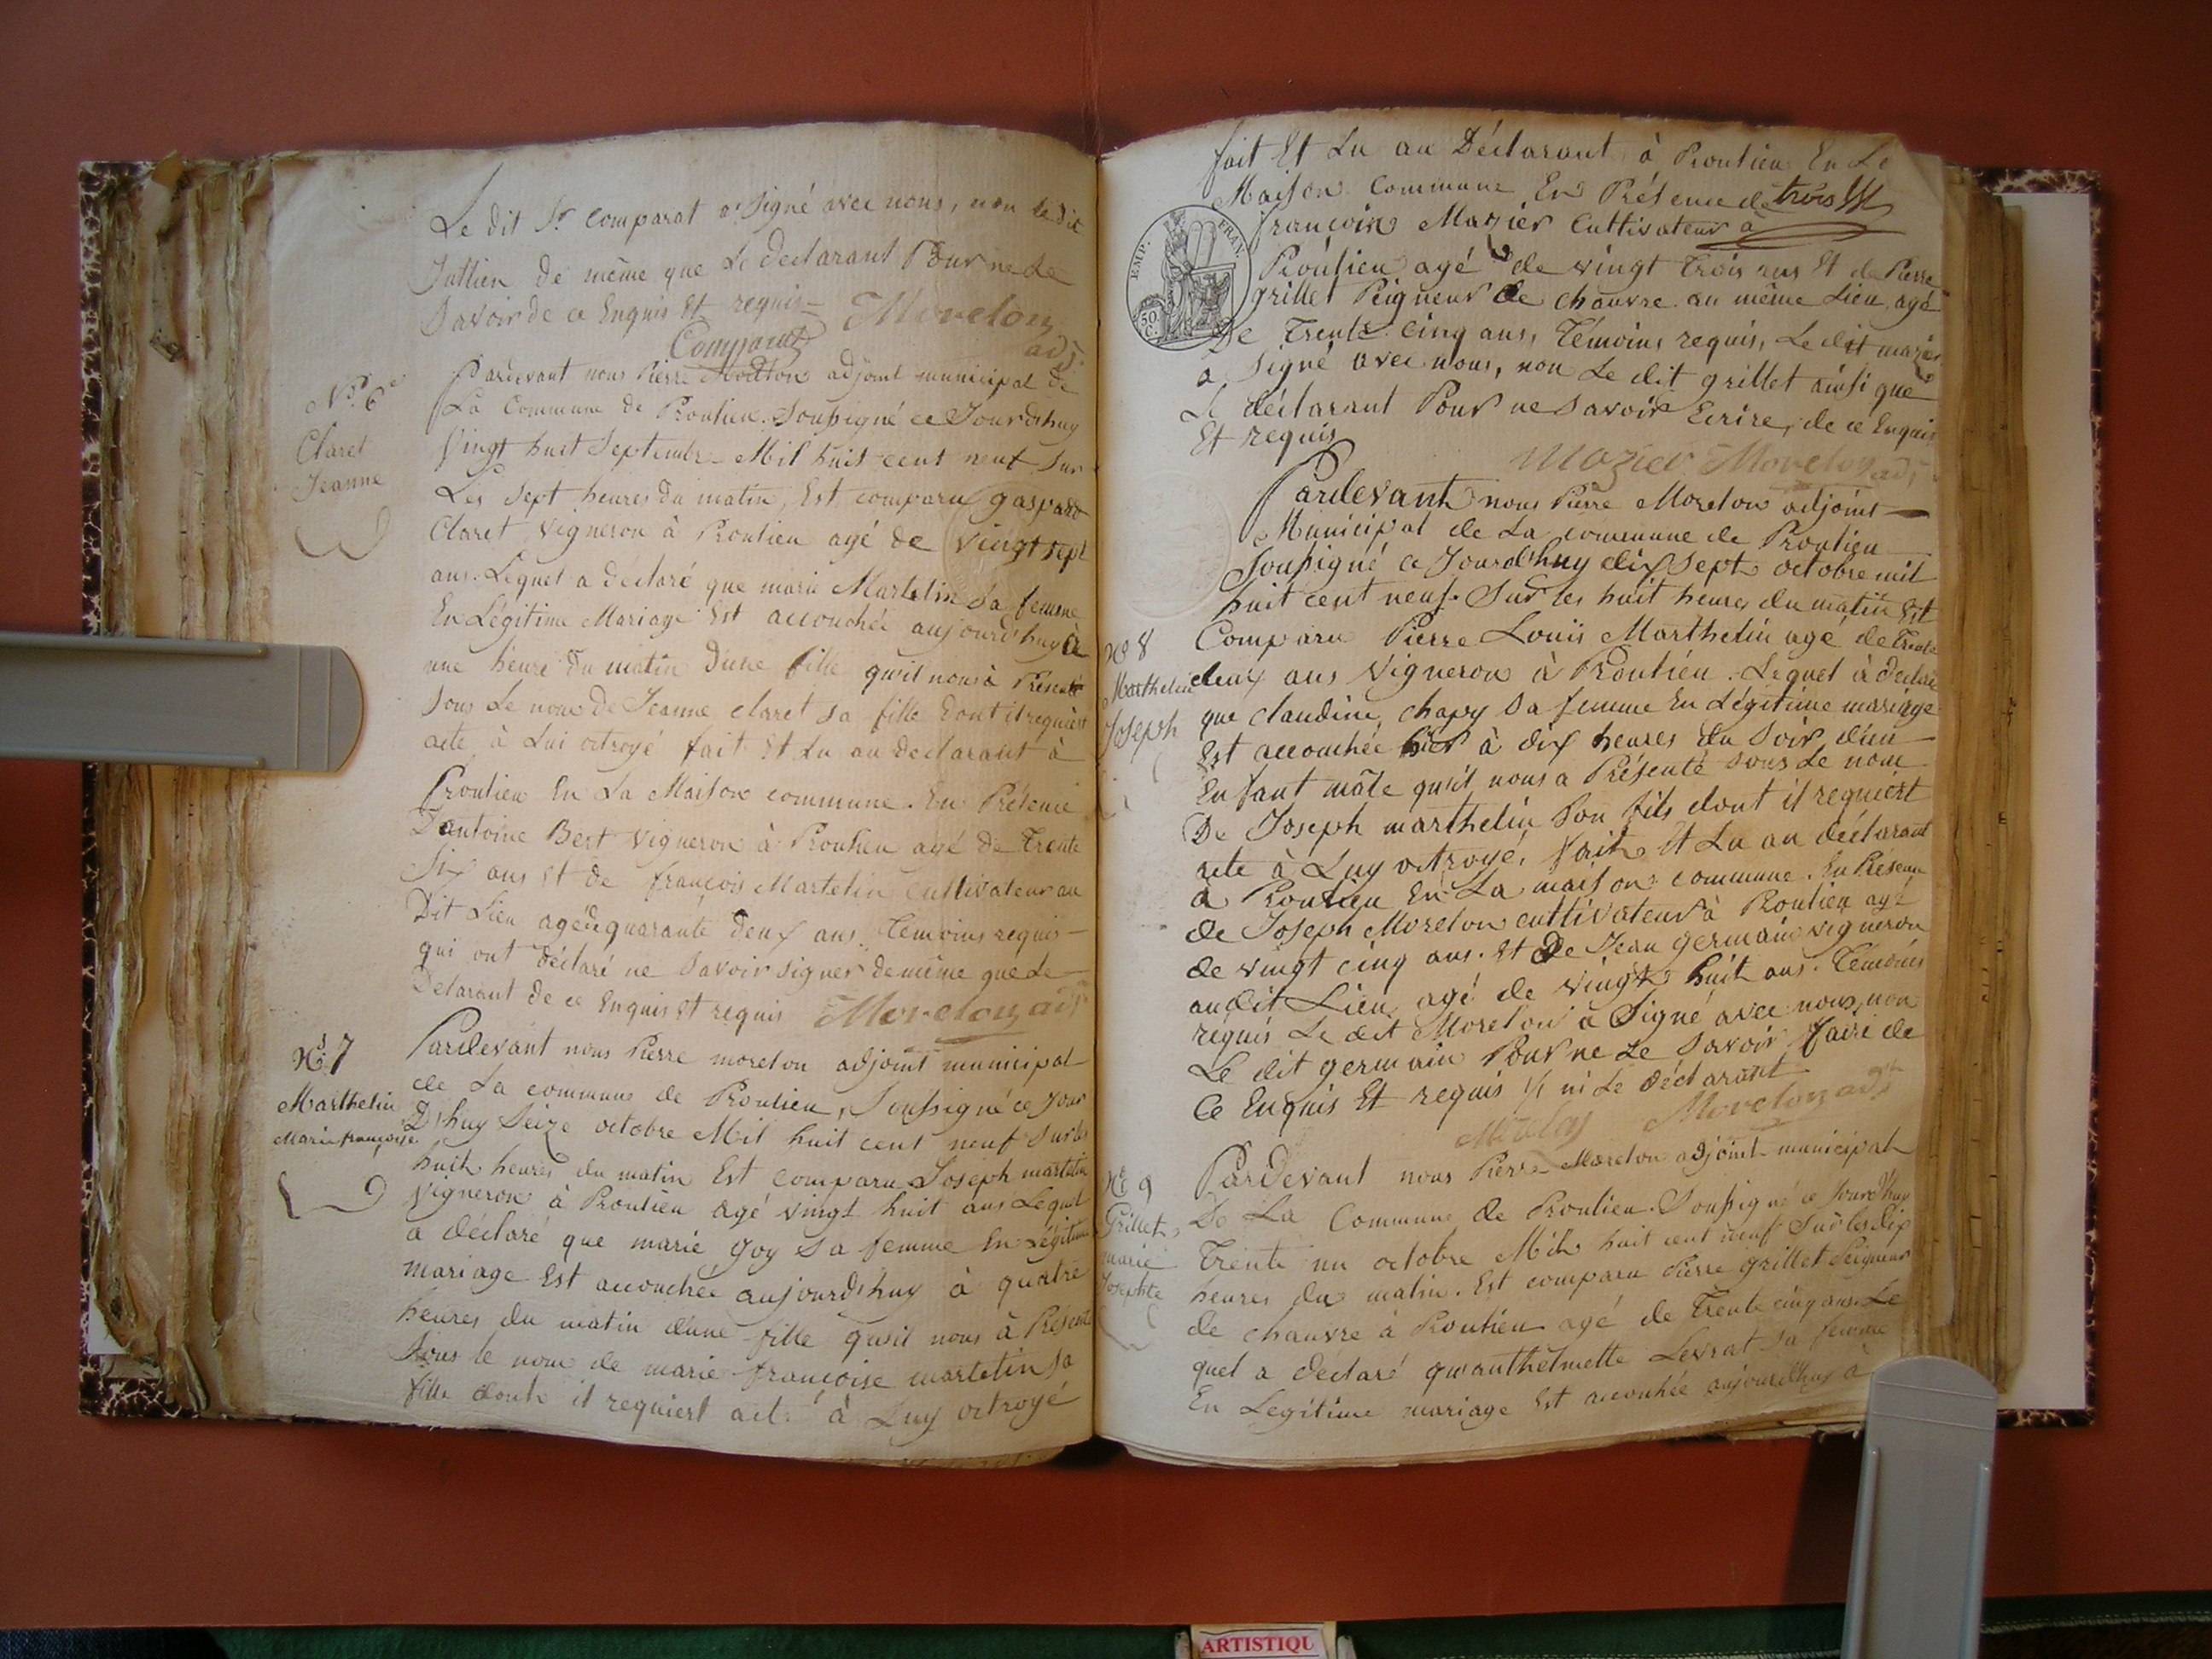 Le dit Sr. Comparat a signé avec nous, non le dit
Jullien de même que Le déclarant Pour ne Le
Savoir de ce Enquis Et requis Morelon
Comparat adj.
No. 6e
Claret
Jeanne
Pardevant nous Pierre Morelon adjoint municipal de
La Commune de Proulieu. Soussigné ce Jourd'huy
Vingt huit Septembre Mil huit cent neuf Sur
Les Sept heures du matin, Est comparu gaspard
Claret Vigneron à Proulieu agé de vingt sept
ans. Lequel a déclaré que marie Martelin Sa femme
En Légitime Mariage Est accouchée aujourd'huy à
une heure du matin d'une fille qu'il nous à Présenté
Sous Le nom De Jeanne claret sa fille Dont il requiert
acte à Lui octroyé fait Et Lu au Déclarant à
Proulieu En La Maison commune. En Présence
D'antoine Bert vigneron à Proulieu agé De Trente
Six ans Et de françois Martelin Cultivateur au
Dit Lieu agé de quarante Deux ans. Temoins requis
qui ont déclaré ne Savoir Signer de même que Le
Déclarant de ce Enquis Et requis Morelon adjt
No. 7
Marthelin
Marie françoise
Pardevant nous Pierre morelon adjoint municipal
de La commune de Proulieu, Soussigné ce Jour
D'huy Seize octobre Mil huit cent neuf Sur les
huit heures du matin Est comparu Joseph martelin
Vigneron à Proulieu agé vingt huit ans Lequel
a déclaré que marie goy Sa femme En Légitime
mariage Est accouchée aujourd'huy à quatre
heures du matin d'une fille qu'il nous à Présenté
Sous le nom de marie françoise martelin sa
fille dont il requiert acte à Luy octroyé
fait Et Lu au Déclarant à Proulieu En Le
Maison Commune En Présence de trois
françois Mazier Cultivateur à
EMP. FRAN.
50 C.
Proulieu agé de vingt trois ans Et de Pierre
grillet Peigneur de chanvre au même Lieu, agé
De Trente cinq ans, Témoins requis, Le dit mazier
a Signé avec nous, non Le dit grillet ainsi que
Le déclarant Pour ne Savoir Ecrire, de ce Enquis
Et requis
Mazier Morelon adj.
No 8
Marthelin
Joseph
Pardevant nous Pierre Morelon adjoint
Municipal de La commune de Proulieu
Soussigné ce Jourd'huy dix Sept octobre mil
huit cent neuf. Sur les huit heures du matin Est
Comparu Pierre Louis Marthelin agé de Trente
deux ans Vigneron à Proulieu. Lequel à déclaré
que claudine chapy Sa femme En Légitime mariage
Est accouchée hier à dix heures du Soir d'un
Enfant mâle qu'il nous a Présenté Sous Le nom
De Joseph marthelin Son fils dont il requiert
acte à Luy octroyé, Fait Et Lu au déclarant
à Proulieu En La maison commune. En Présence
de Joseph Morelon cultivateur à Proulieu agé
de vingt cinq ans. Et De Jean germain vigneron
audit Lieu agé de vingt huit ans. Temoins
requis Le dit Morelon à Signé avec nous, non
Le dit germain Pour ne Le Savoir faire de
Ce Enquis Et requis ni Le déclarant
Morelon Morelon adjt
No 9
Grillet
marie
Josephte
Pardevant nous Pierre Morelon adjoint municipal
De La Commune de Proulieu. Soussigné ce Jourd'huy
Trente un octobre Mil huit cent neuf Sur les dix
heures du matin. Est comparu Pierre grillet Peigneur
de chanvre à Proulieu agé de Trente cinq ans. Le
quel a déclaré qu'anthelmette Levrat sa femme
En Legitime mariage Est accouchée aujourd'huy à
ARTISTIQU